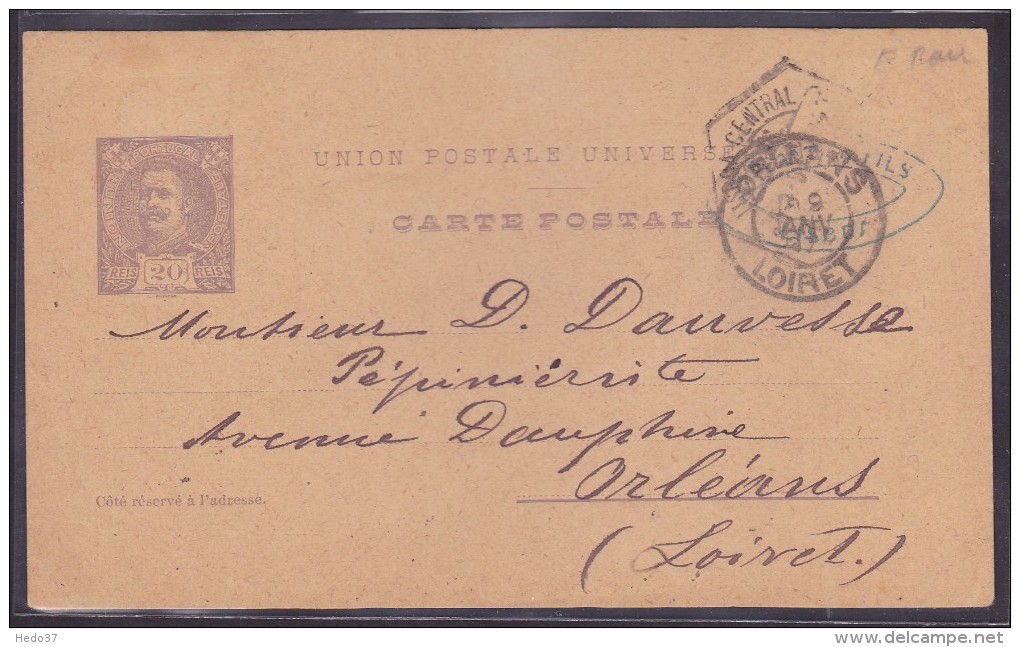 UNION POSTALE UNIVERSE
CARTE POSTALE
PORTUGAL
REIS 20 REIS
CENTRAL
FILS
ORLEANS
9
JANV
LOIRET
Monsieur D. Dauvesse
Pépiniérsite
Avenue Dauphine
Orléans
(Loiret.)
Côté réservé à l'adresse.
Hedo37
www.delcampe.net